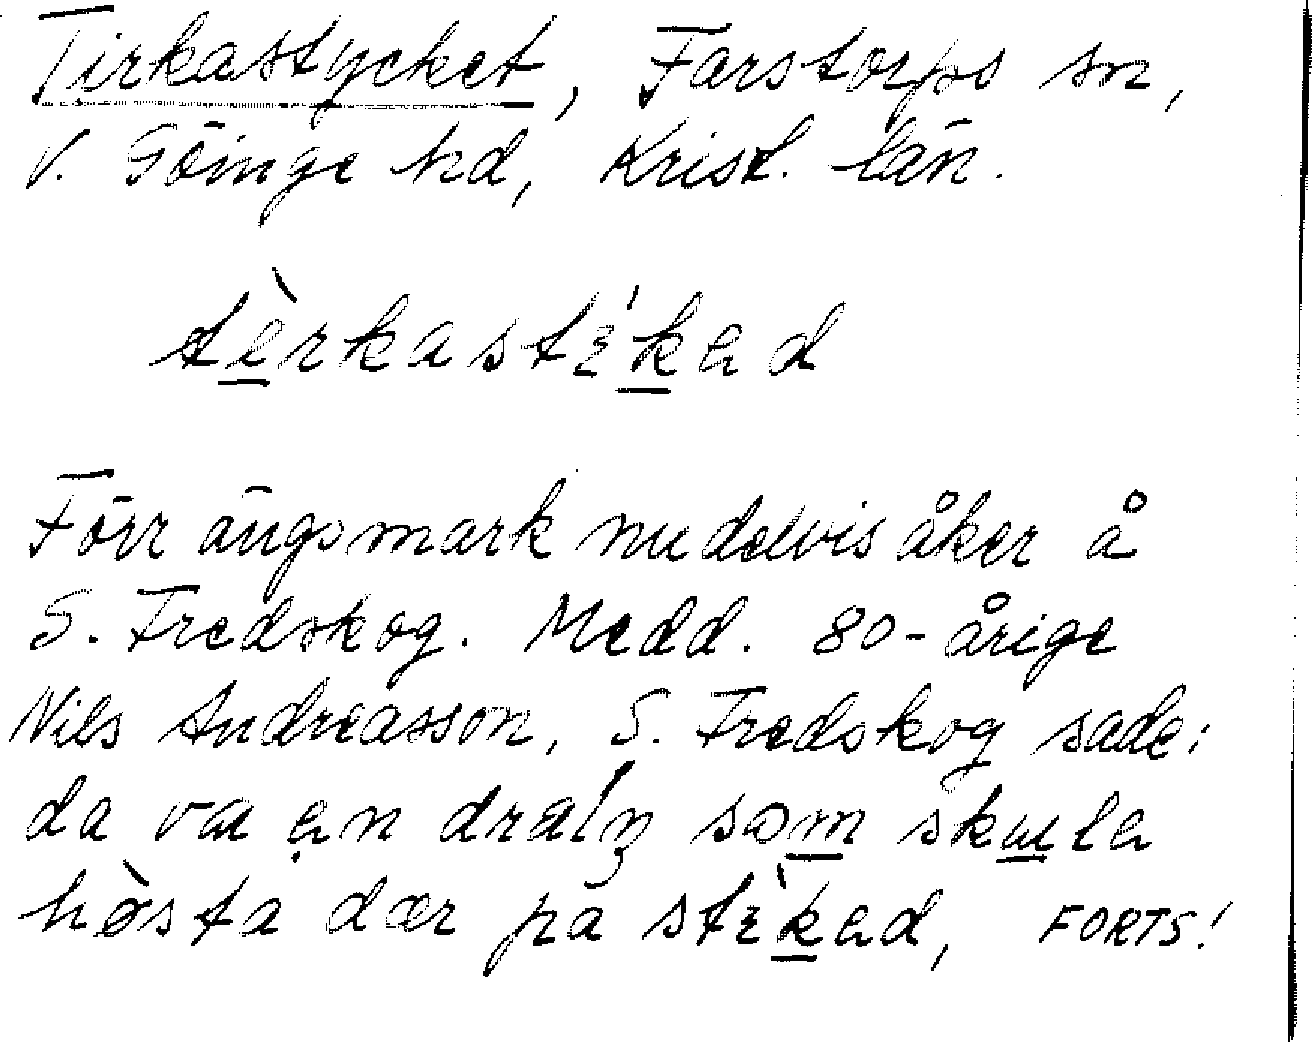 Tirkastycket, Farstorps sn,
V. Göinge hd, Krist. län.
tèrkastékad
Förr ängsmark nu delvis åker å
S. Fredskog. Medd. 80-årige
Nils Andreasson, S. Fredskog sade:
da va en som skula
hösta dær på stékad, FORTS!